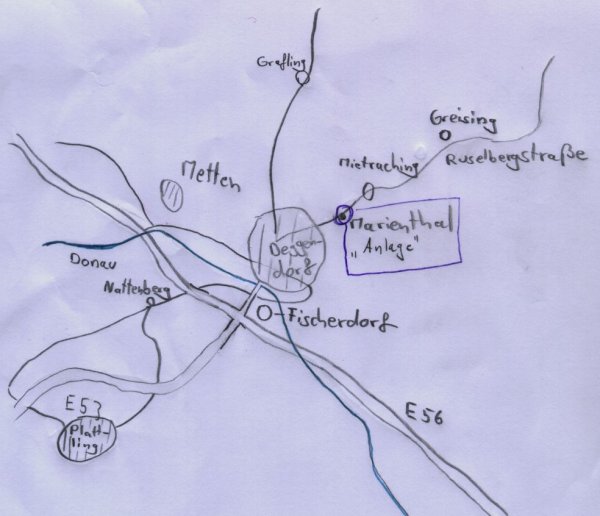 Grafling
Greising
Mietraching
Ruselbergstraße
Metten
Marienthal
„Anlage"
Deggen-
dorf
Donau
Nattenberg
Fischerdorf
E53
E56
Platt-
ling